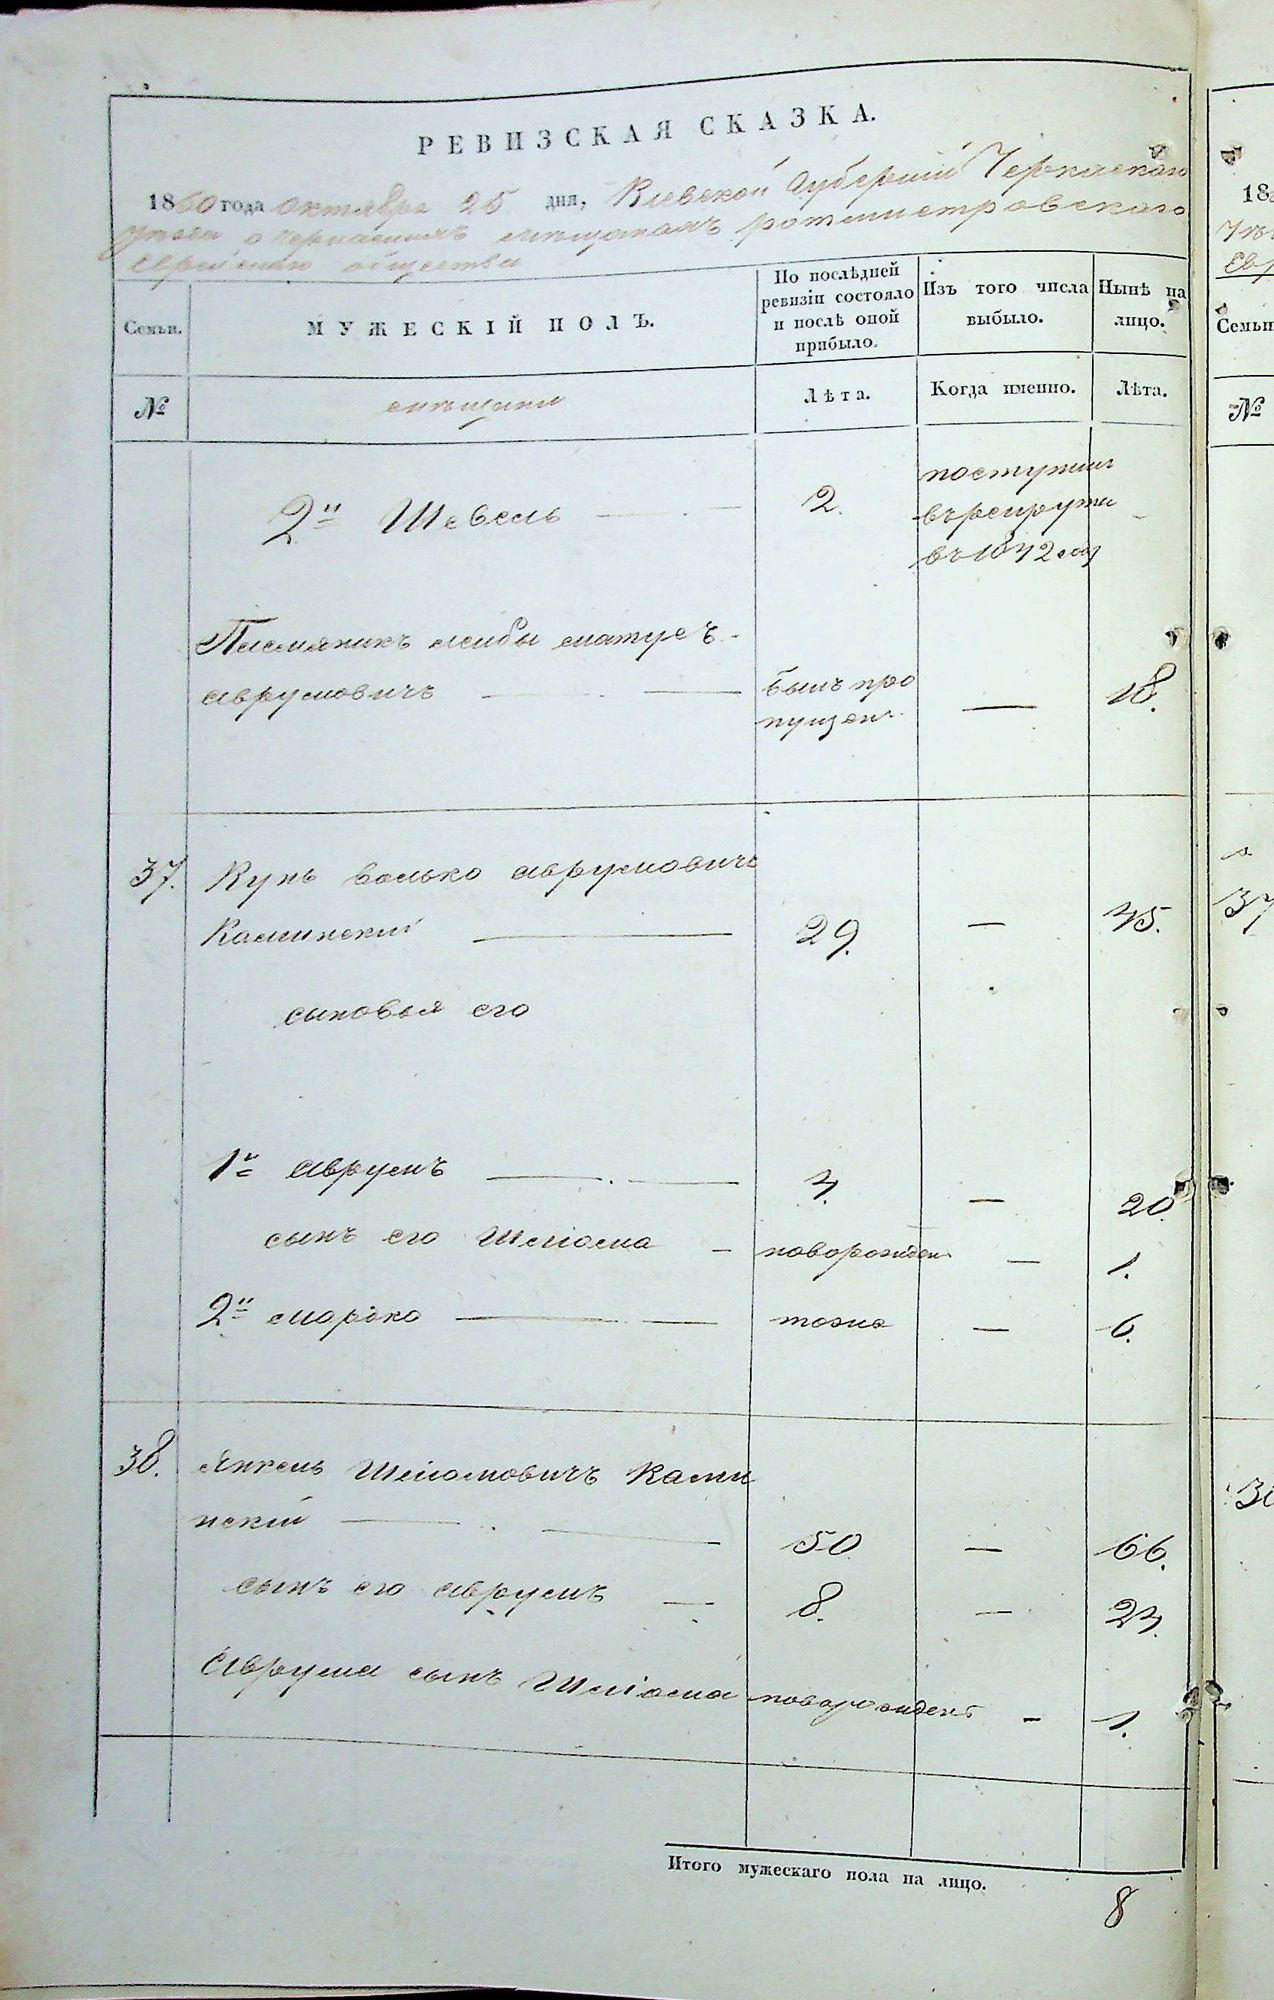 РЕВИЗСКАЯ СКАЗКА.
1850 года октября 25 дня, Киевской Губерніи Черкаскаго
уѣзда о черкаскихъ мѣщанахъ ротмистровскаго
Еврейскаго общества
Семьи.
МУЖЕСКІЙ ПОЛЪ.
По послѣдней
ревизіи состояло
и послѣ оной
прибыло.
Изъ того числа
выбыло.
Нынѣ на
лицо.
№
мѣщани
Лѣта.
Когда именно.
Лѣта.
2й Шевель
2.
поступилъ
въ рекруты
въ 1842 году
Племяникъ лейбы
аврумовичъ
былъ про
пущен
18.
37.
Кунъ Волько аврумовичъ
Каминскій
29.
45.
сыновья его
1й аврумъ
4.
20
сынъ его Шліома
новорожден
1.
2й морько
тоже
6.
38.
Янкель Шліомовичъ Ками
нскій
50
66.
сынъ его аврумъ
8.
24.
Аврума сынъ Шліома
новорожденъ
1.
Итого мужескаго пола на лицо.
8
18
Семьи
№
37